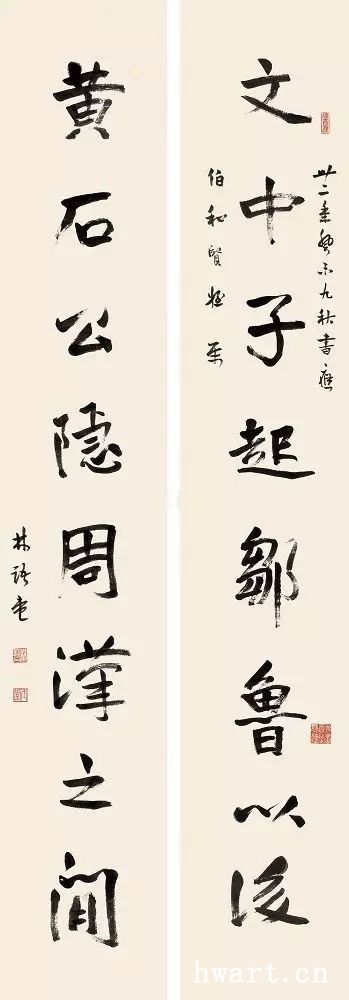 文中子起鄒魯以後
廿二年癸未九秋書應
伯和賢姪屬
黄石公隱周漢之間
林語堂
hwart.cn